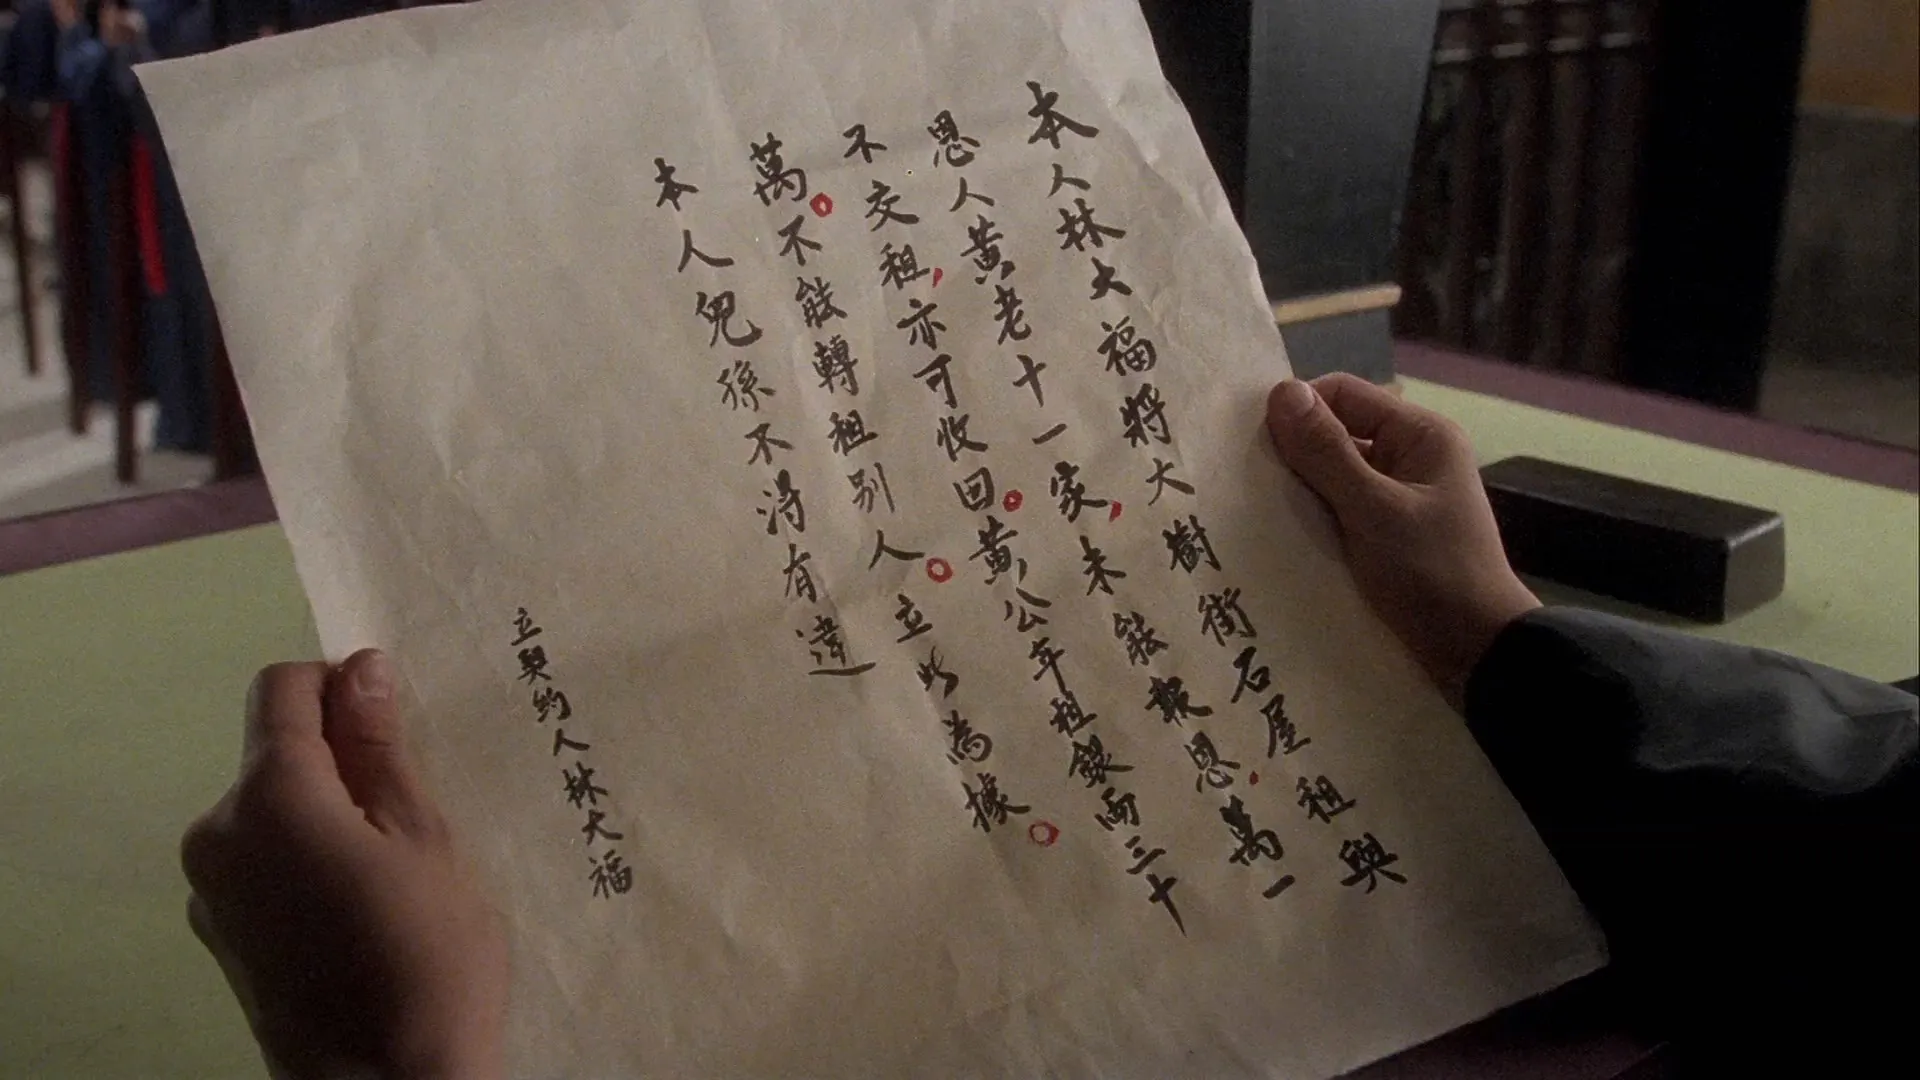 本人林大福將大樹街石屋租與
恩人黃老十一家,未能報恩,萬一
不交租,亦可收回。黃公年租銀兩三十
萬。不能轉租别人。立此為據。
本人兒孫不得有違
立契约人林大福